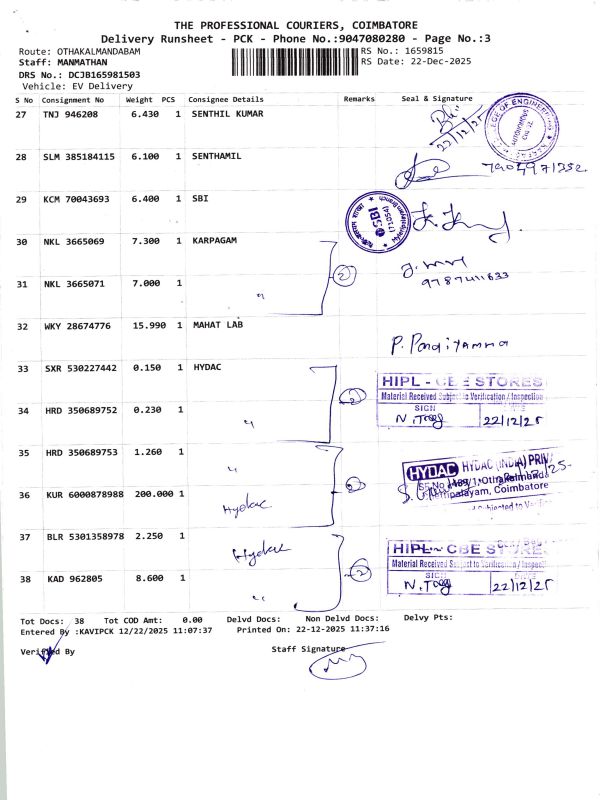 THE PROFESSIONAL COURIERS, COIMBATORE
Delivery Runsheet - PCK - Phone No.:9047080280 - Page No.:3
Route: OTHAKALMANDABAM RS No.: 1659815
Staff: MANMATHAN RS Date: 22-Dec-2025
DRS No.: DCJB165981503
Vehicle: EV Delivery
S No Consignment No Weight PCS Consignee Details Remarks Seal & Signature
27 TNJ 946208 6.430 1 SENTHIL KUMAR 22/12/25
28 SLM 385184115 6.100 1 SENTHAMIL
29 KCM 70043693 6.400 1 SBI SBI
30 NKL 3665069 7.300 1 KARPAGAM
31 NKL 3665071 7.000 1 " 2
32 WKY 28674776 15.990 1 MAHAT LAB
33 SXR 530227442 0.150 1 HYDAC
HIPL - CBE STORES
Material Received Subject to Verification / Inspection
34 HRD 350689752 0.230 1 " 2 SIGN 22/12/25
35 HRD 350689753 1.260 1 "
HYDAC HYDAC (INDIA) PRIV
Coimbatore
36 KUR 6000878988 200.000 1 Hydac 2
37 BLR 5301358978 2.250 1 Hydac
HIPL - CBE STORES
Material Received Subject to Verification / Inspecti
38 KAD 962805 8.600 1 " 2 SIGN 22/12/25
Tot Docs: 38 Tot COD Amt: 0.00 Delvd Docs: Non Delvd Docs: Delvy Pts:
Entered By :KAVIPCK 12/22/2025 11:07:37 Printed On: 22-12-2025 11:37:16
Verified By Staff Signature